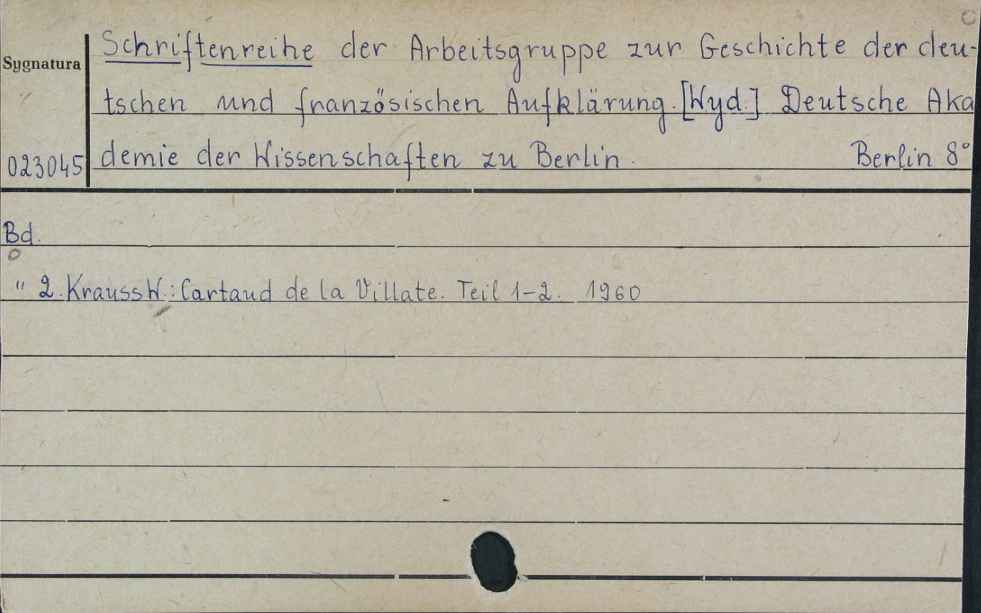 Schriftenreihe der Arbeitsgruppe zur Geschichte der deu-
Sygnatura
tschen und französischen Aufklärung. [Wyd.] Deutsche Aka
023045 demie der Wissenschaften zu Berlin. Berlin 8°
Bd.
" 2. Krauss W.: Cartaud de la Villate. Teil 1-2. 1960